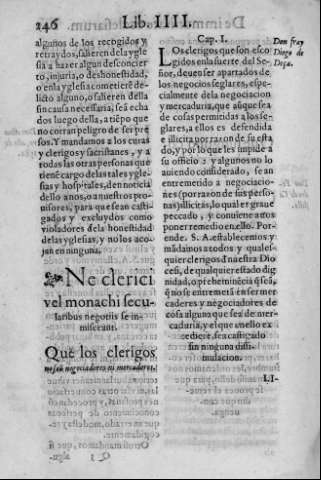 246
Lib. IIII.
algunos de los recogidos y
retraydos, salieren de la ygle
sia a hazer algun desconcier
to, injuria, o deshonestidad,
o en la yglesia cometierē de-
licto alguno, o salieren della
sin causa necessaria, sea echa
dos luego della, a tiēpo que
no corran peligro de ser pre
sos. Y mandamos a los curas
y clerigos y sacristanes, y a
todas las otras personas que
tienē cargo de las tales ygle-
sias y hospitales, den noticia
dello a nos, o a nuestros pro-
uisores, para que sean casti-
gados y excluydos como
violadores de la honestidad
de las yglesias, y no los aco-
jan en ninguna.
Ne clerici
vel monachi secu-
laribus negotiis se im-
misceant.
Que los clerigos
no seā negociadores ni mercaderes.
Cap. I.
Don fray
Diego de
Deça.
Los clerigos que son esco
gidos en la suerte del Se-
ñor, deuen ser apartados de
los negocios seglares, espe-
cialmente de la negociacion
y mercaduria, que aūque sea
de cosas permitidas a los se-
glares, a ellos es defendida
e illicita por razon de su esta
do, y por lo que les impide a
su officio: y algunos no lo
auiendo considerado, se an
entremetido a negociacio-
nes (por razon de sus perso-
nas) illicitas, lo qual es graue
peccado, y conuiene a nos
poner remedio en ello. Por-
ende. S. A. establecemos y
mādamos a todos y quales-
quier clerigos d̄ nuestra Dio
cesi, de qualquier estado dig
nidad, o preheminēcia q̄ seā,
q̄ no se entremetā en ser mer
caderes y negociadores de
cosa alguna que sea de mer-
caduria, y el que en ello ex
cediere, sea castigado
sin ninguna dissi-
mulacion.
LI-